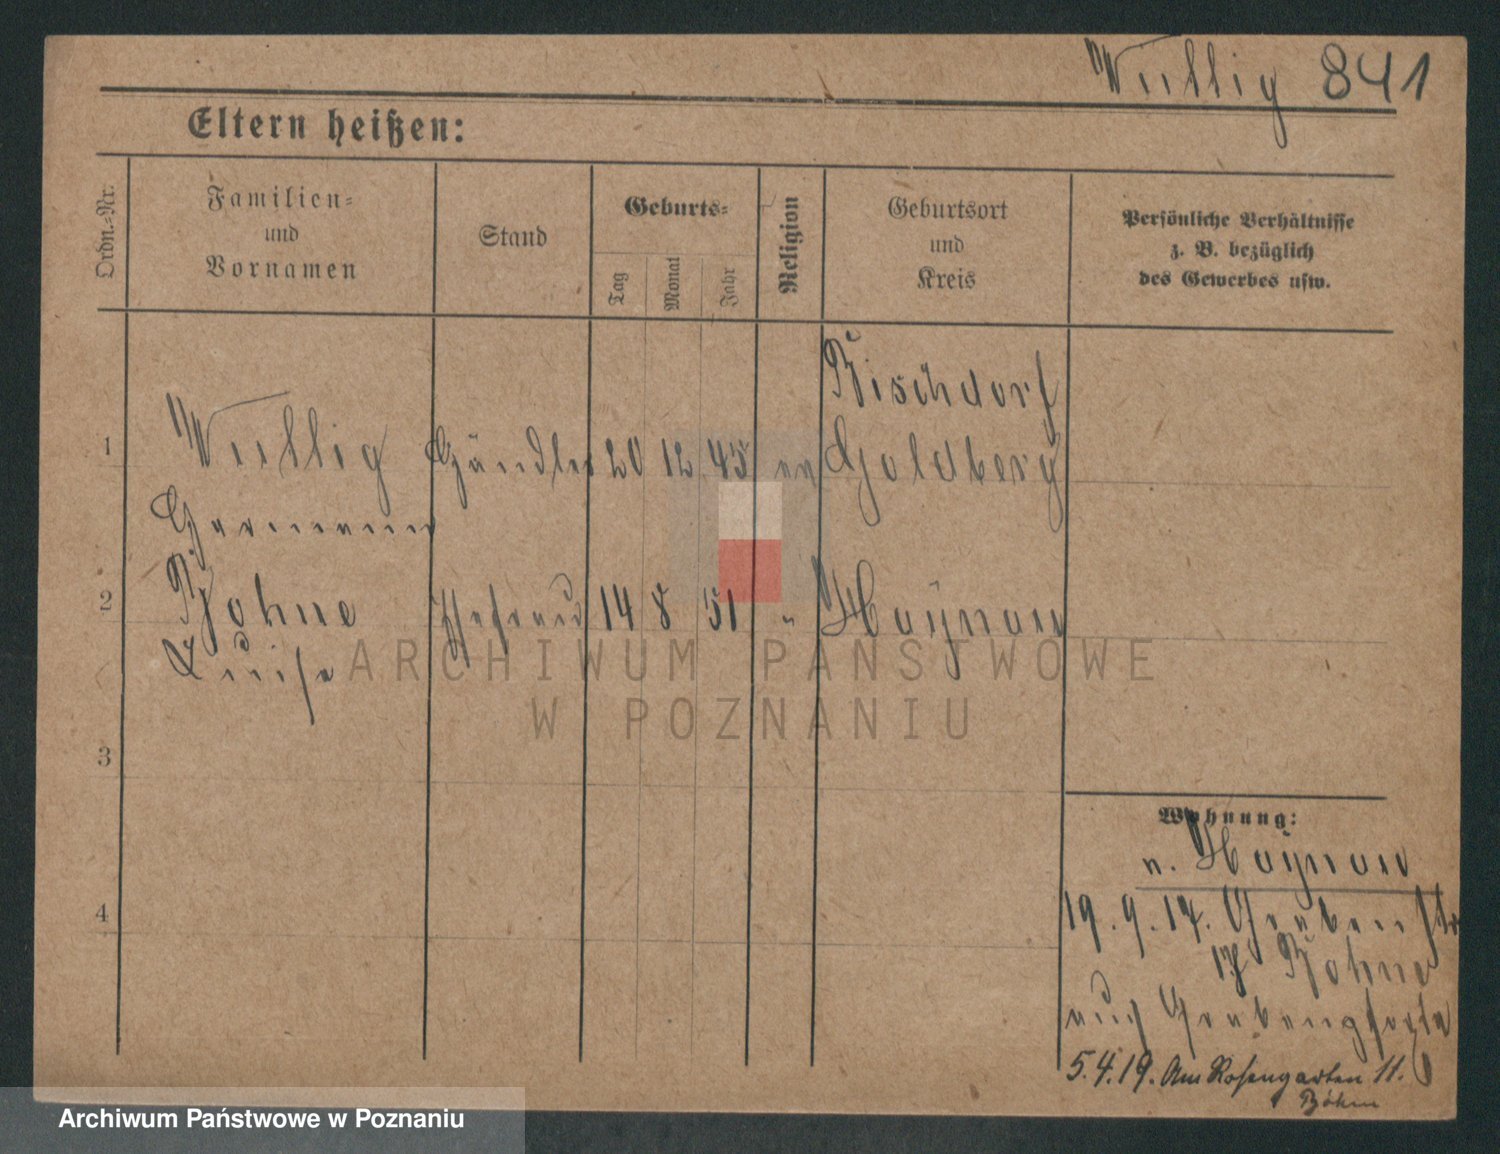 Wuttig 841
Eltern heißen:
Ordn.-Nr.
Familien-
und
Vornamen
Stand
Geburts-
Tag
Monat
Jahr
Religion
Geburtsort
und
Kreis
Persönliche Verhältnisse
z. B. bezüglich
des Gewerbes usw.
Bischdorf
1 Wuttig Händler 20 12 45 ev Goldberg
Hermann
2 Böhne Ehefrau 14 8 51 " Haynau
Luise
3
4
Wohnung:
n. Haynau
19. 9. 17. Grabenstr
17 Böhne
auf
5.4.19. Am Rosengarten 11.
Böhm
ARCHIWUM PAŃSTWOWE
W POZNANIU
Archiwum Państwowe w Poznaniu